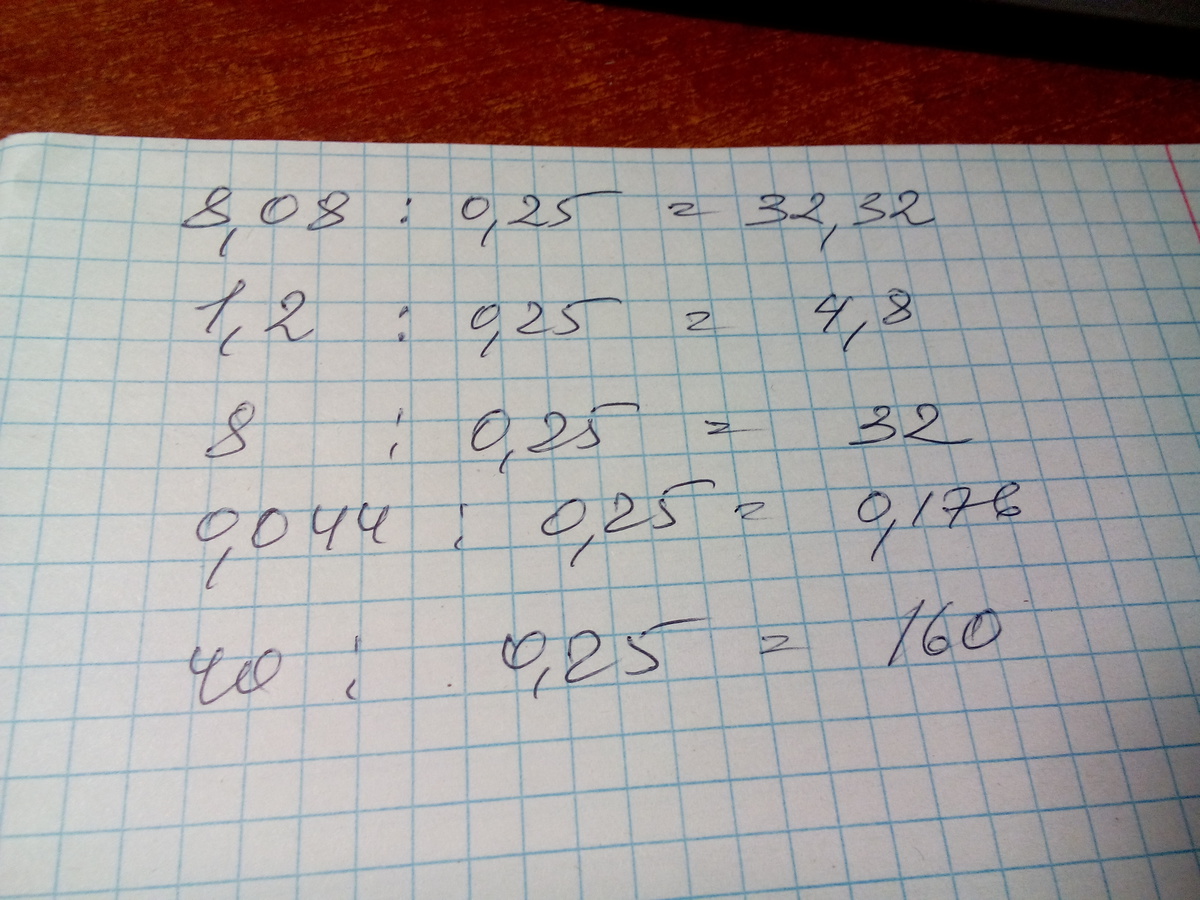 8,08 : 0,25 = 32,32
1,2 : 0,25 = 4,8
8 : 0,25 = 32
0,044 : 0,25 = 0,176
40 : 0,25 = 160